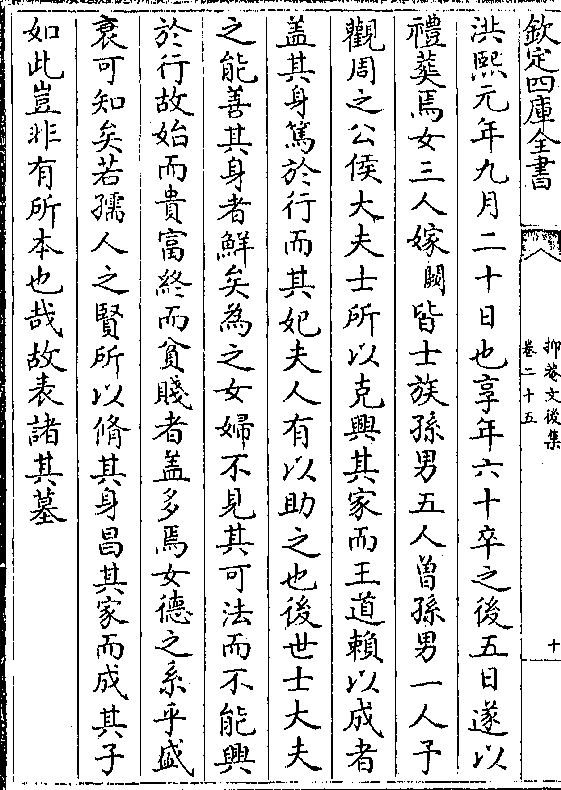 欽定四庫全書
抑菴文後集
卷二十五
十
洪熙元年九月二十日也享年六十卒之後五日遂以
禮葬焉女三人嫁闕皆士族孫男五人曾孫男一人予
觀周之公侯大夫士所以克興其家而王道賴以成者
盖其身篤於行而其妃夫人有以助之也後世士大夫
之能善其身者鮮矣為之女婦不見其可法而不能興
於行故始而貴富終而貧賤者盖多焉女德之系乎盛
衰可知矣若孺人之賢所以脩其身昌其家而成其子
如此豈非有所本也哉故表諸其墓